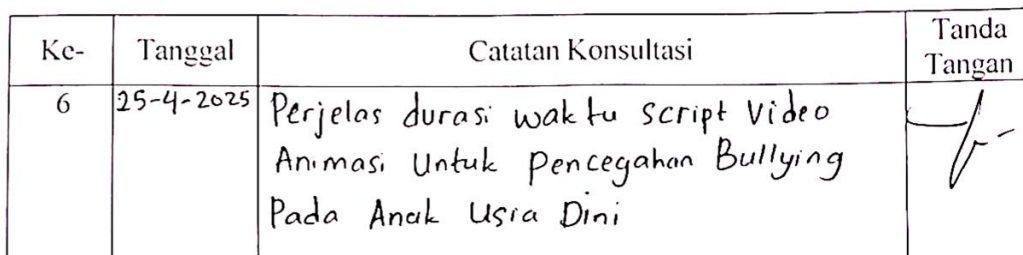 Ke- Tanggal Catatan Konsultasi Tanda Tangan
6 25-4-2025 Perjelas durasi waktu script Video
Animasi Untuk Pencegahan Bullying
Pada Anak Usia Dini